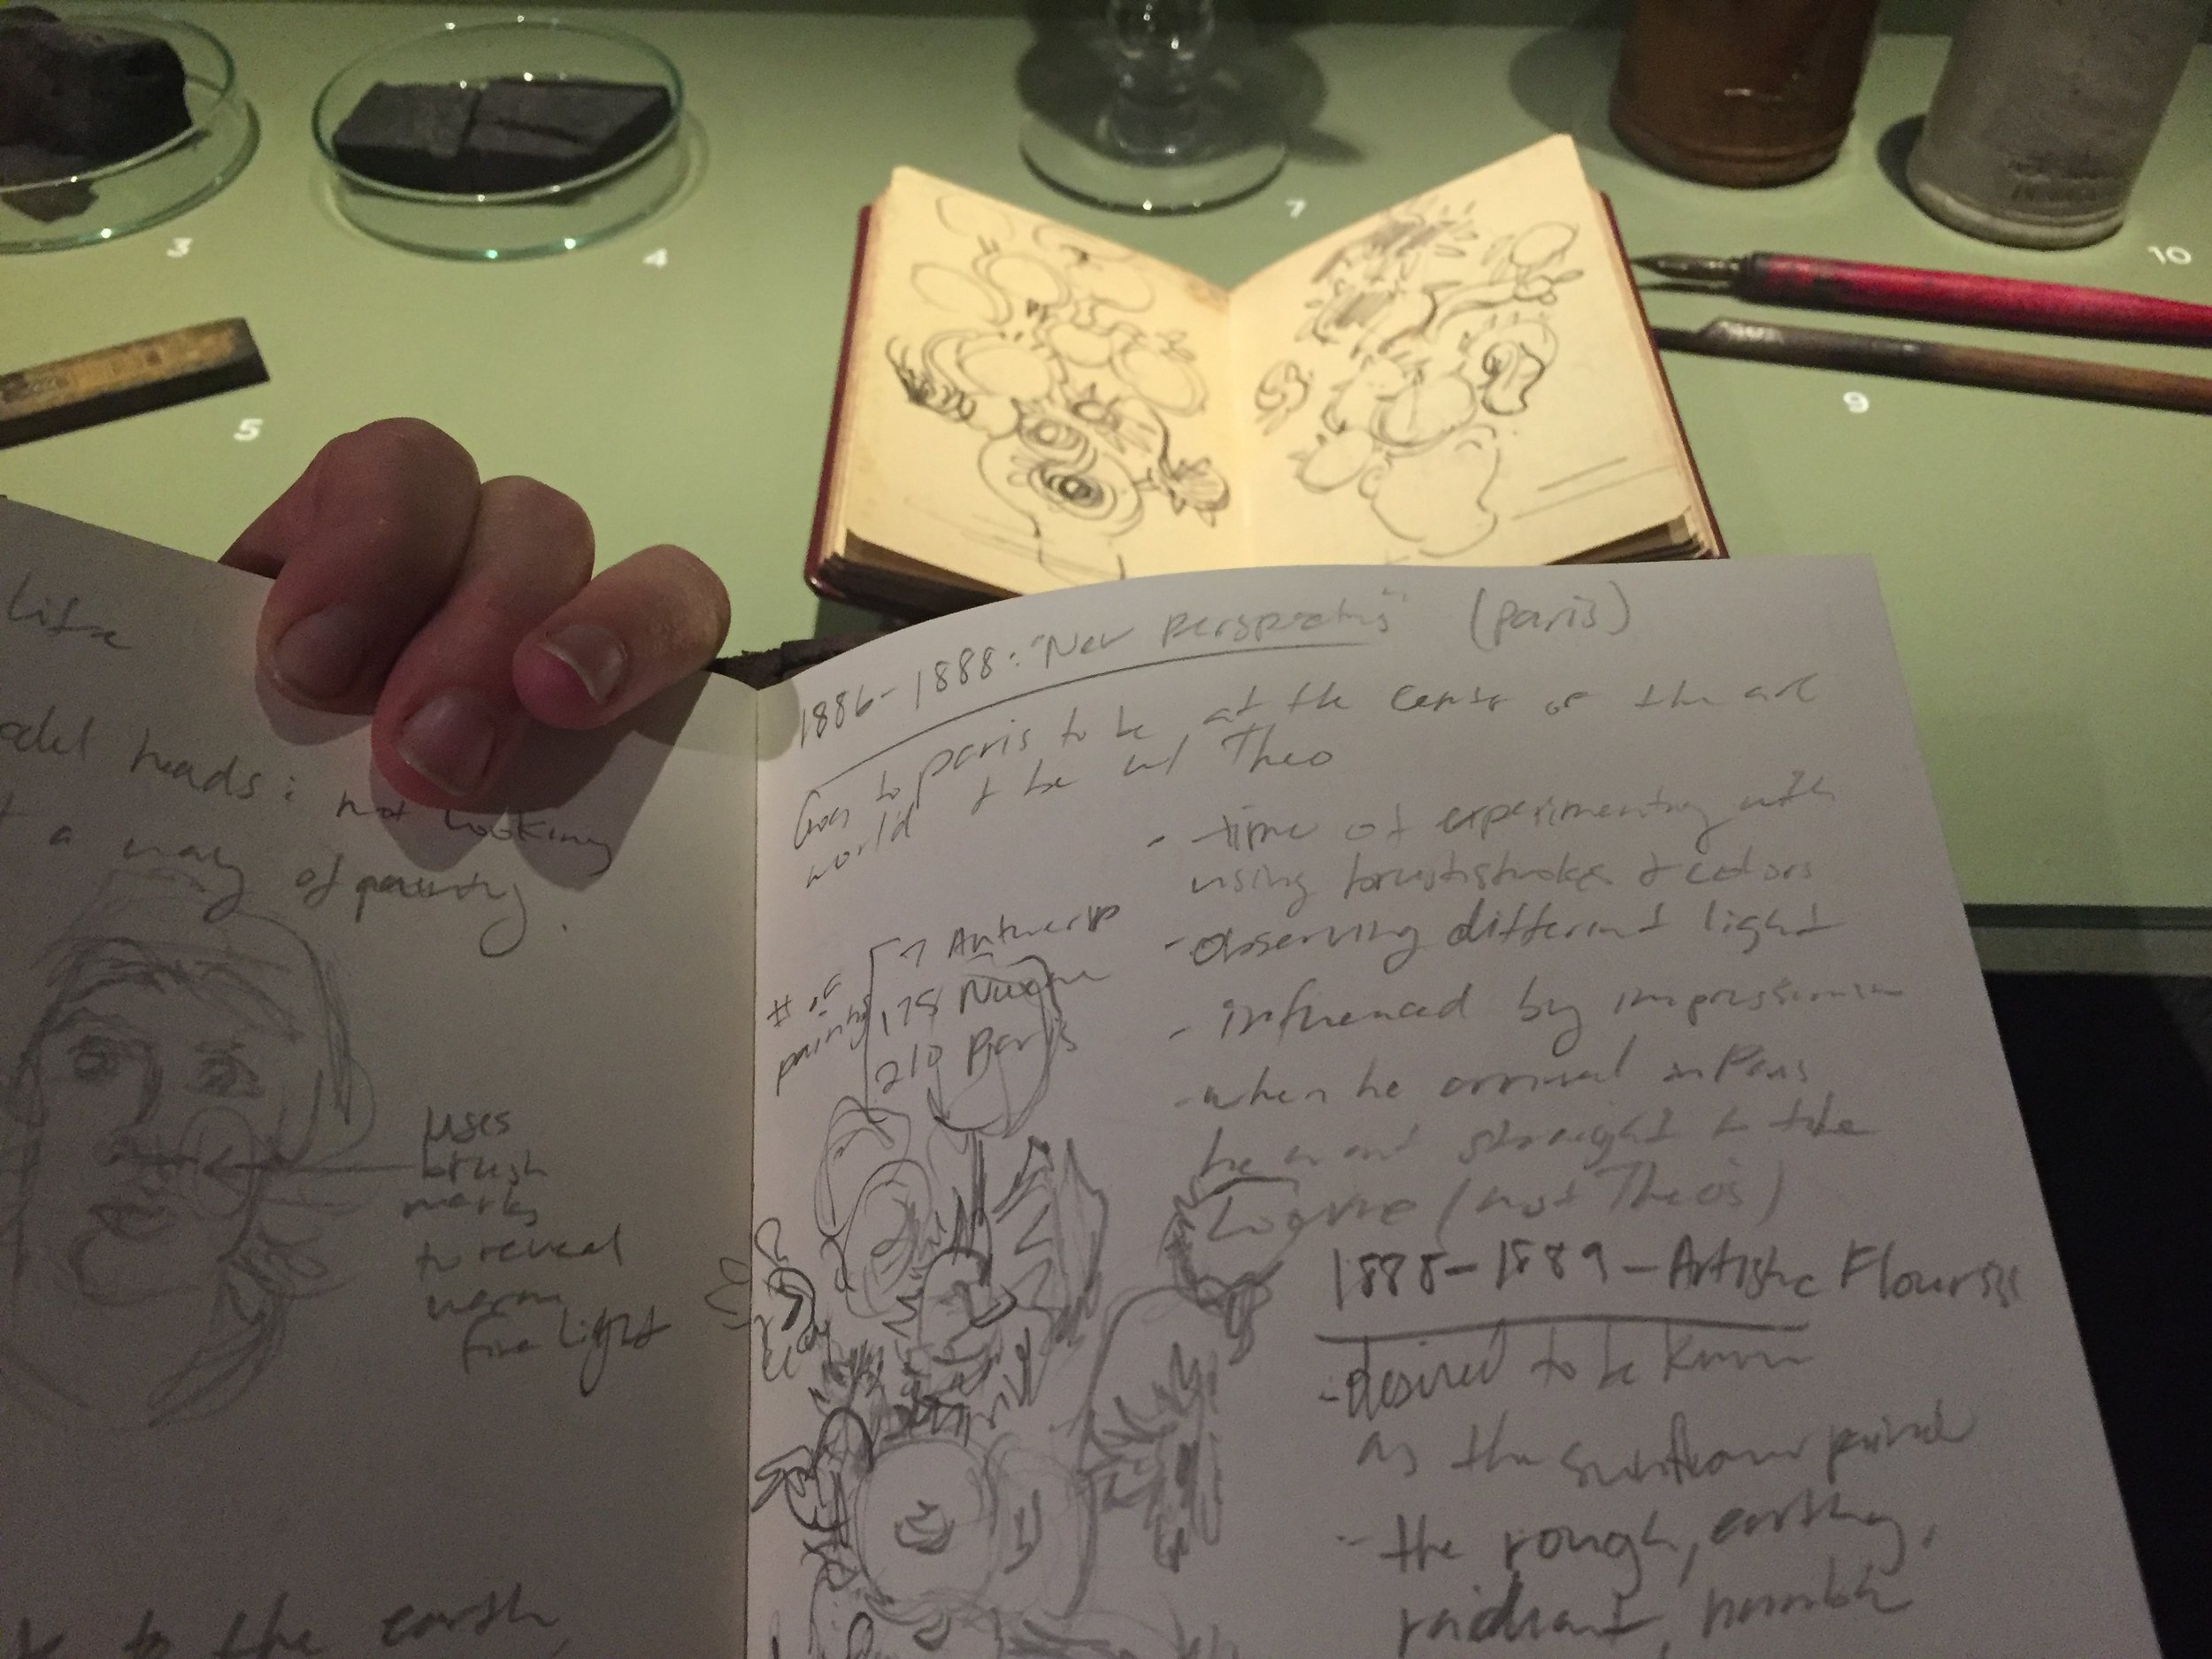 3
4
5
7
9
10
life
heads: not looking
a way of painting.
uses
brush
marks
to reveal
warm
fire light
to the earth,
1886-1888: "New Perspectives" (paris)
Goes to paris to be at the center of the art
world + to be w/ Theo
- time of experimenting with
using brushstrokes & colors
- observing different light
- influenced by impressionism
- when he arrived in Paris
he went straight to the
Louvre (not Theo's)
# of
paintings
7 Antwerp
175
210 Paris
1888-1889 - Artistic Flourish
- desired to be known
as the sunflower painter
- the rough, earthy,
radiant, humble